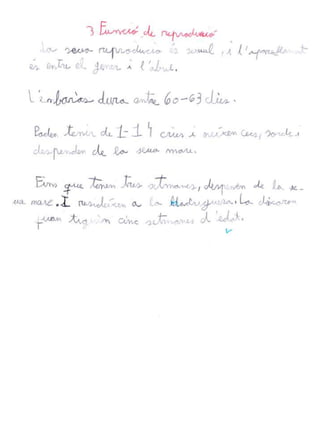 3 Funció de reproducció
La seua reproducció és sexual, i l'aparellament
és entre el gener i l'abril.
L'enbaràs dura entre 60-63 dies.
Poden tenir de 1-14 cries i neixen cecs, sords i
despenden de la seua mare.
Fins que tenen tres setmanes, despenen de la se-
ua mare. I resideixen a la Madriguera. La deixaren
quan tiguin cinc setmanes d'edat.